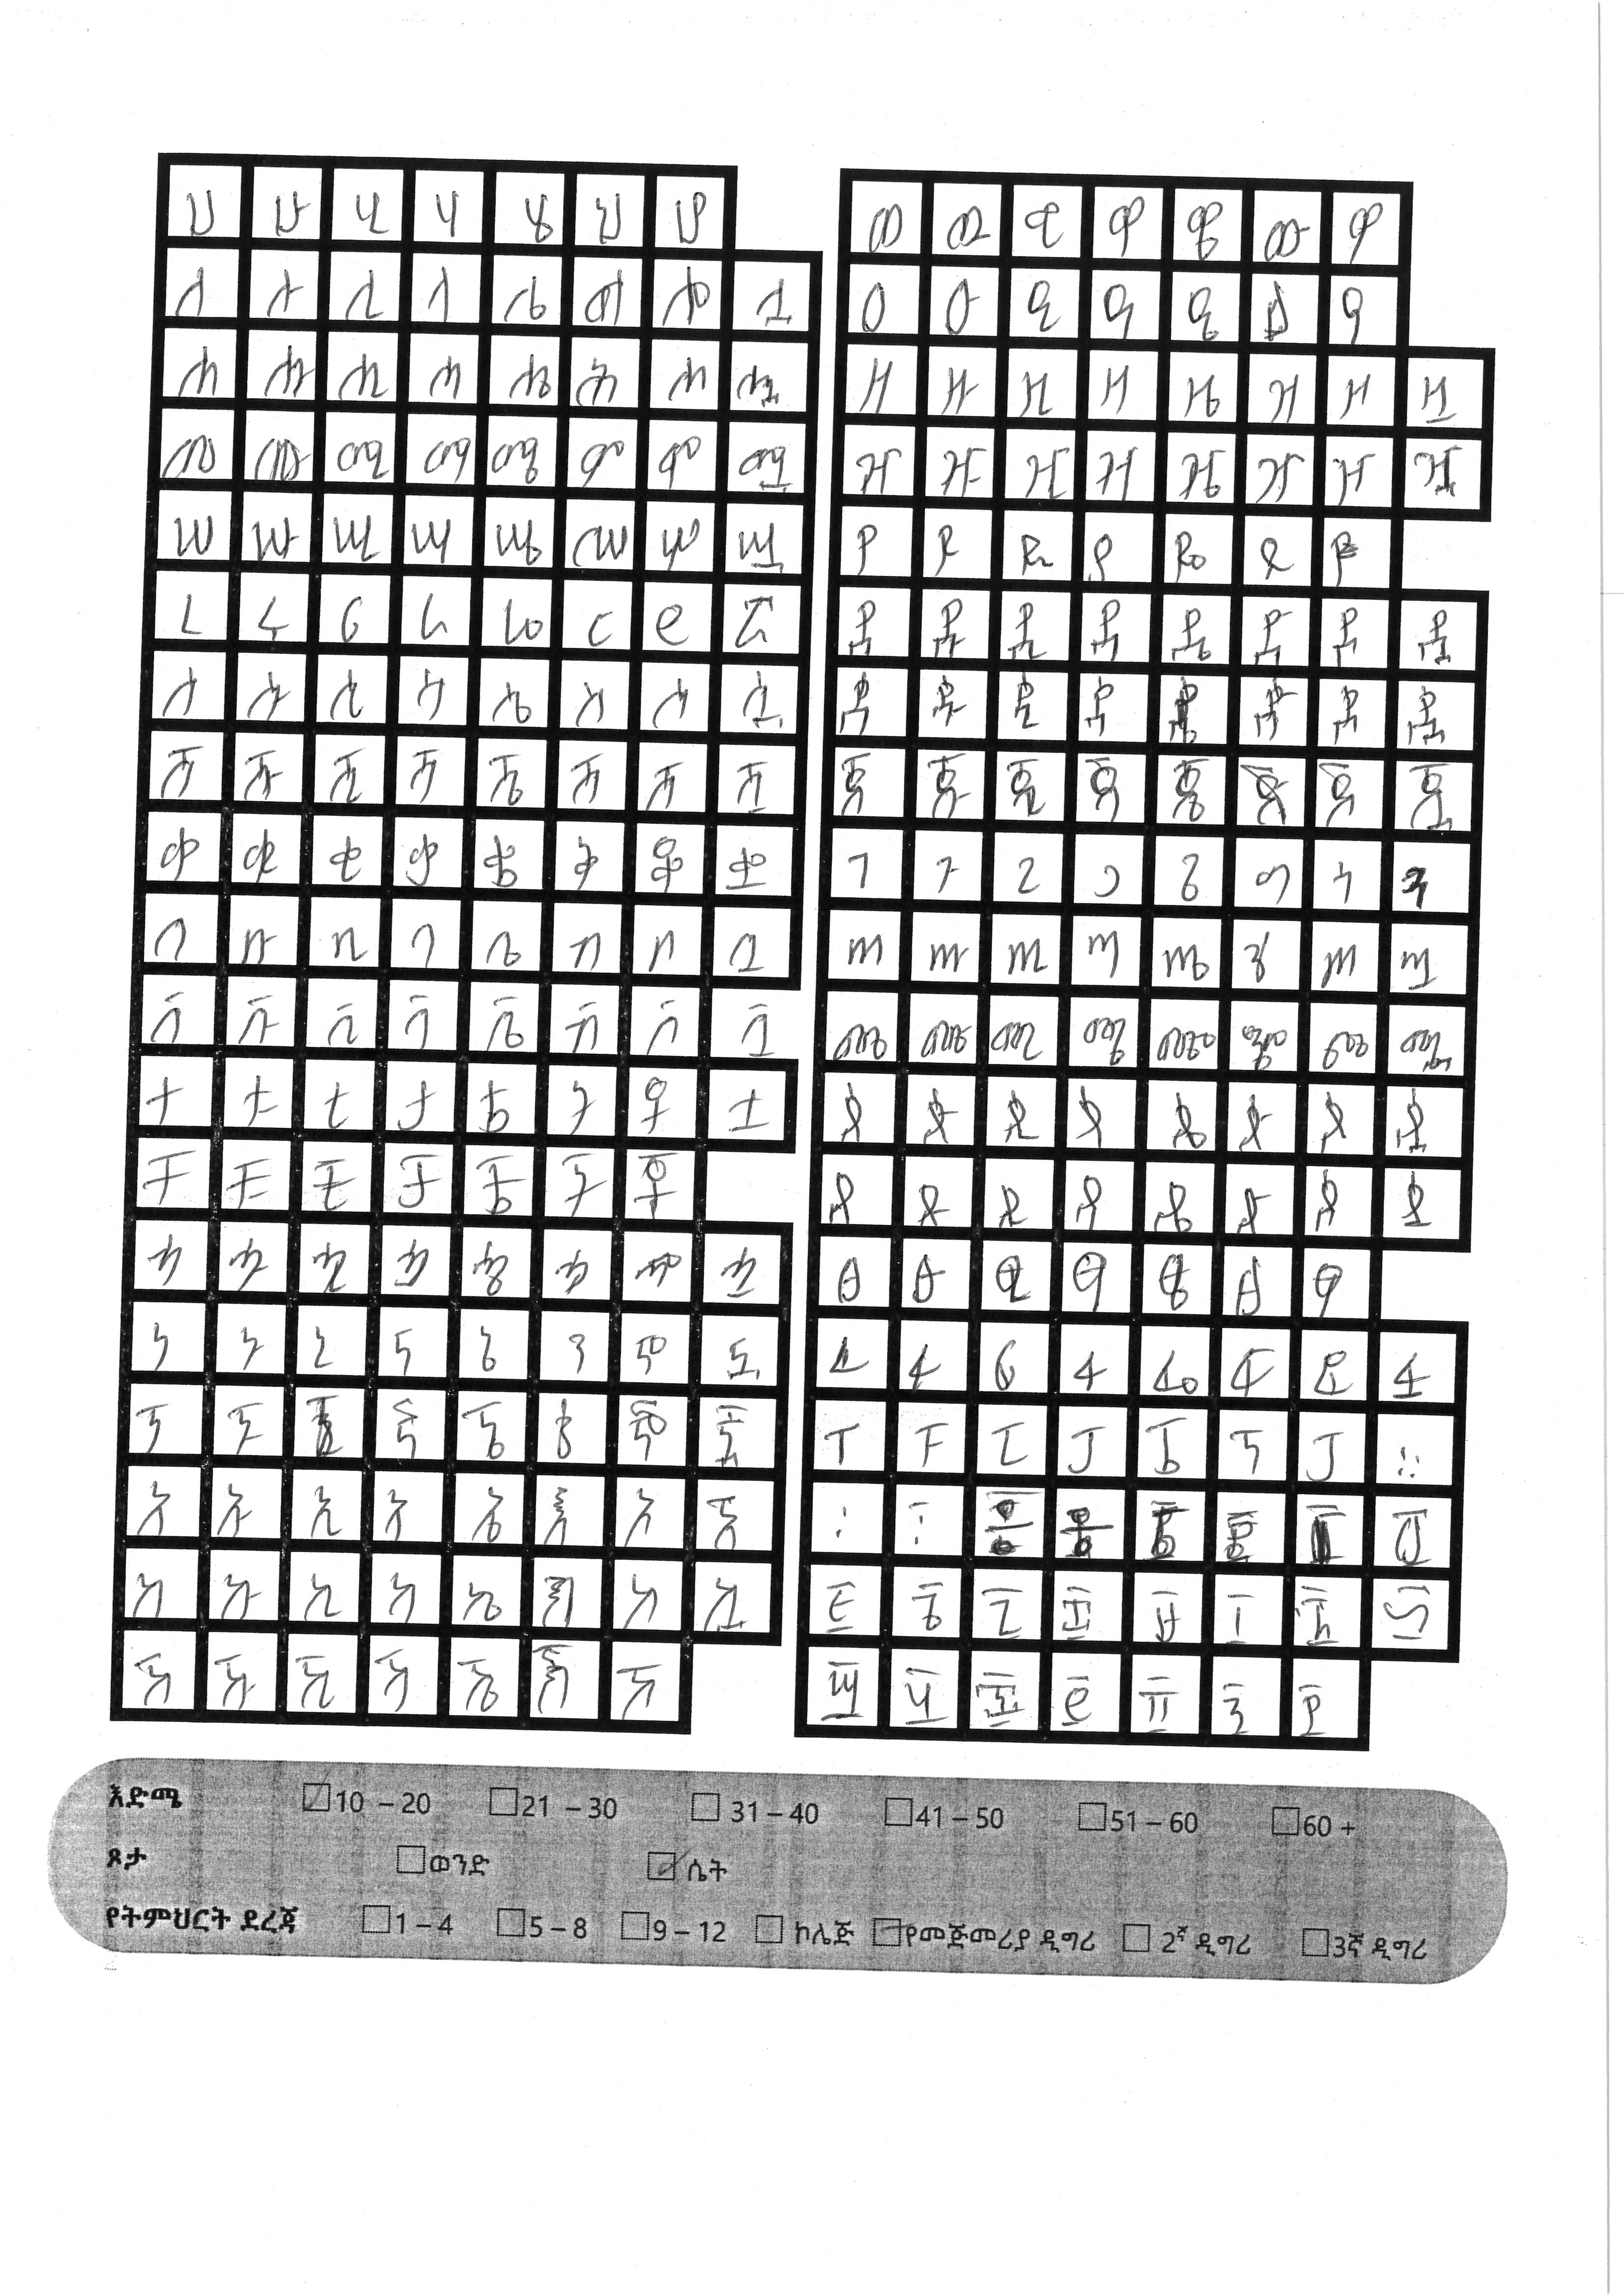 ሀ ሁ ሂ ሃ ሄ ህ ሆ
ለ ሉ ሊ ላ ሌ ል ሎ ሏ
ሐ ሑ ሒ ሓ ሔ ሕ ሖ ሗ
መ ሙ ሚ ማ ሜ ም ሞ ሟ
ሠ ሡ ሢ ሣ ሤ ሥ ሦ ሧ
ረ ሩ ሪ ራ ሬ ር ሮ ሯ
ሰ ሱ ሲ ሳ ሴ ስ ሶ ሷ
ሸ ሹ ሺ ሻ ሼ ሽ ሾ ሿ
ቀ ቁ ቂ ቃ ቄ ቅ ቆ ቋ
በ ቡ ቢ ባ ቤ ብ ቦ ቧ
ቨ ቩ ቪ ቫ ቬ ቭ ቮ ቯ
ተ ቱ ቲ ታ ቴ ት ቶ ቷ
ቸ ቹ ቺ ቻ ቼ ች ቾ
ኀ ኁ ኂ ኃ ኄ ኅ ኆ ኋ
ነ ኑ ኒ ና ኔ ን ኖ ኗ
ኘ ኙ ኛ ኜ ኝ ኞ ኟ
አ ኡ ኢ ኣ ኤ እ ኦ ኧ
ከ ኩ ኪ ካ ኬ ክ ኮ ኳ
ኸ ኹ ኺ ኻ ኼ ኽ ኾ
ወ ዉ ዊ ዋ ዌ ው ዎ
ዐ ዑ ዒ ዓ ዔ ዕ ዖ
ዘ ዙ ዚ ዛ ዜ ዝ ዞ ዟ
ዠ ዡ ዢ ዣ ዤ ዥ ዦ ዧ
የ ዩ ዪ ያ ዬ ይ ዮ
ደ ዱ ዲ ዳ ዴ ድ ዶ ዷ
ጀ ጁ ጂ ጃ ጄ ጅ ጆ ጇ
ገ ጉ ጊ ጋ ጌ ግ ጎ ጓ
ጠ ጡ ጢ ጣ ጤ ጥ ጦ ጧ
ጨ ጩ ጪ ጫ ጬ ጭ ጮ ጯ
ጰ ጱ ጲ ጳ ጴ ጵ ጶ ጷ
ጸ ጹ ጺ ጻ ጼ ጽ ጾ ጿ
ፀ ፁ ፂ ፃ ፄ ፅ ፆ
ፈ ፉ ፊ ፋ ፌ ፍ ፎ ፏ
ፐ ፑ ፒ ፓ ፔ ፕ ፖ ።
እድሜ 10 – 20 21 – 30 31 – 40 41 – 50 51 – 60 60 +
ጾታ ወንድ ሴት
የትምህርት ደረጃ 1 – 4 5 – 8 9 – 12 ኮሌጅ የመጅመሪያ ዲግሪ 2ኛ ዲግሪ 3ኛ ዲግሪ